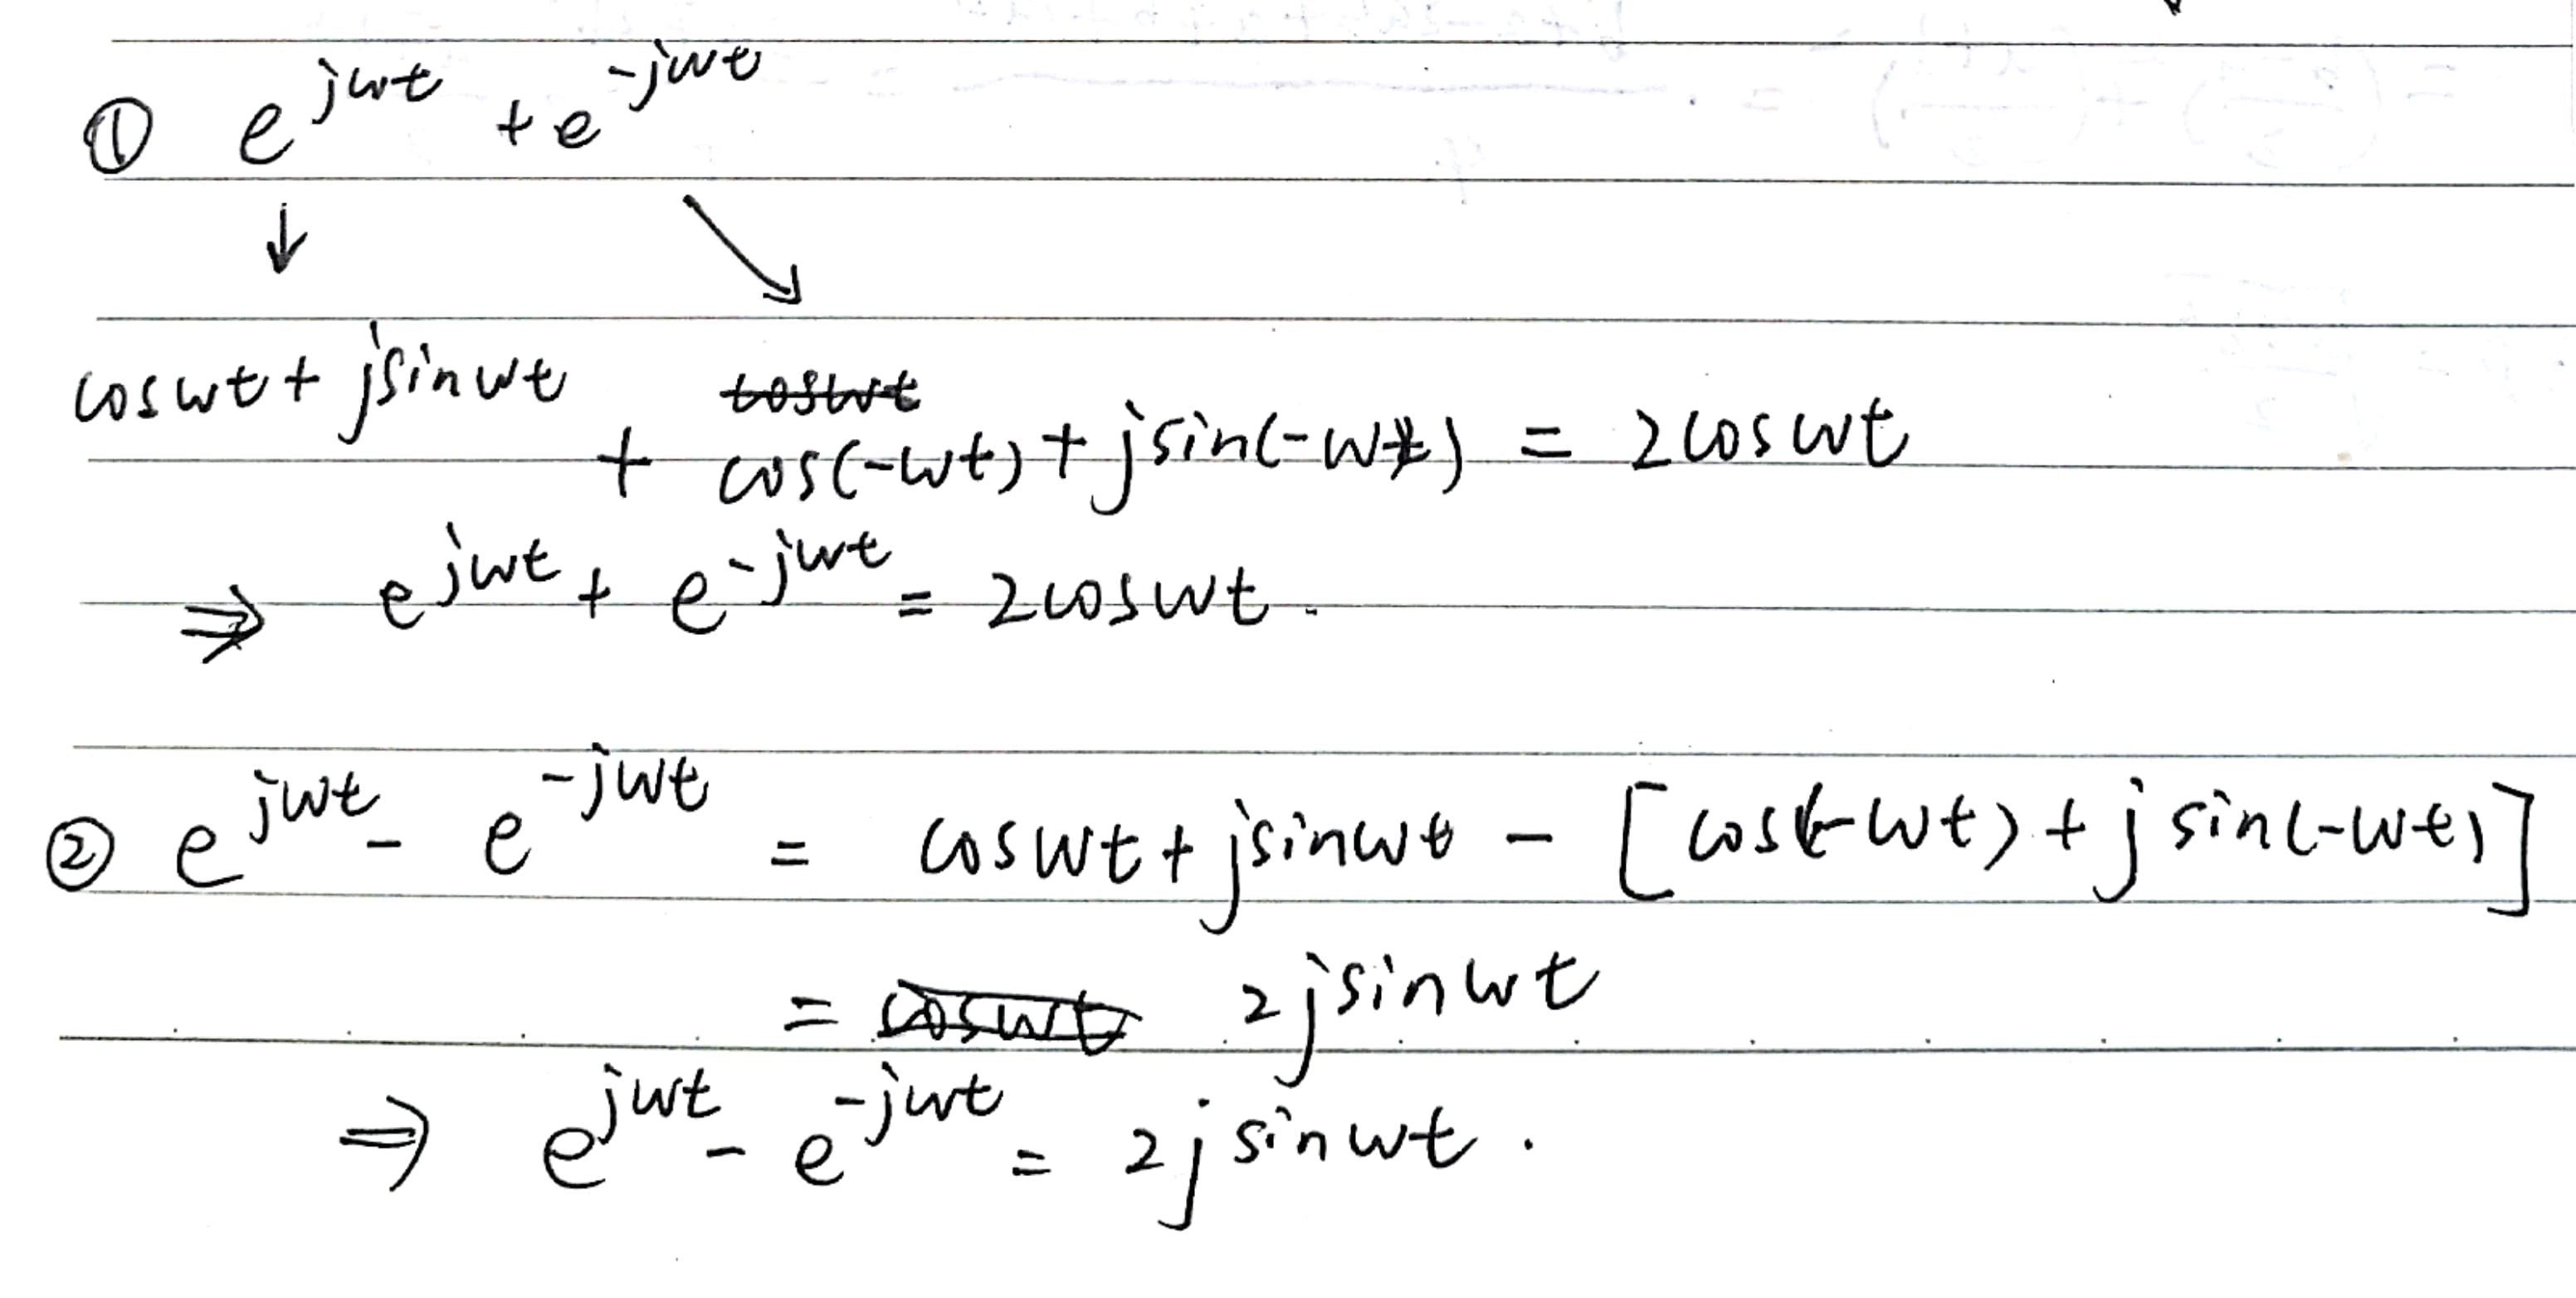 ① e^{jwt} + e^{-jwt}
↓ ↘
coswt + jsinwt + cos(-wt) + jsin(-wt) = 2coswt
⇒ e^{jwt} + e^{-jwt} = 2coswt.
② e^{jwt} - e^{-jwt} = coswt + jsinwt - [cos(-wt) + j sin(-wt)]
= 2jsinwt
⇒ e^{jwt} - e^{-jwt} = 2j sinwt.